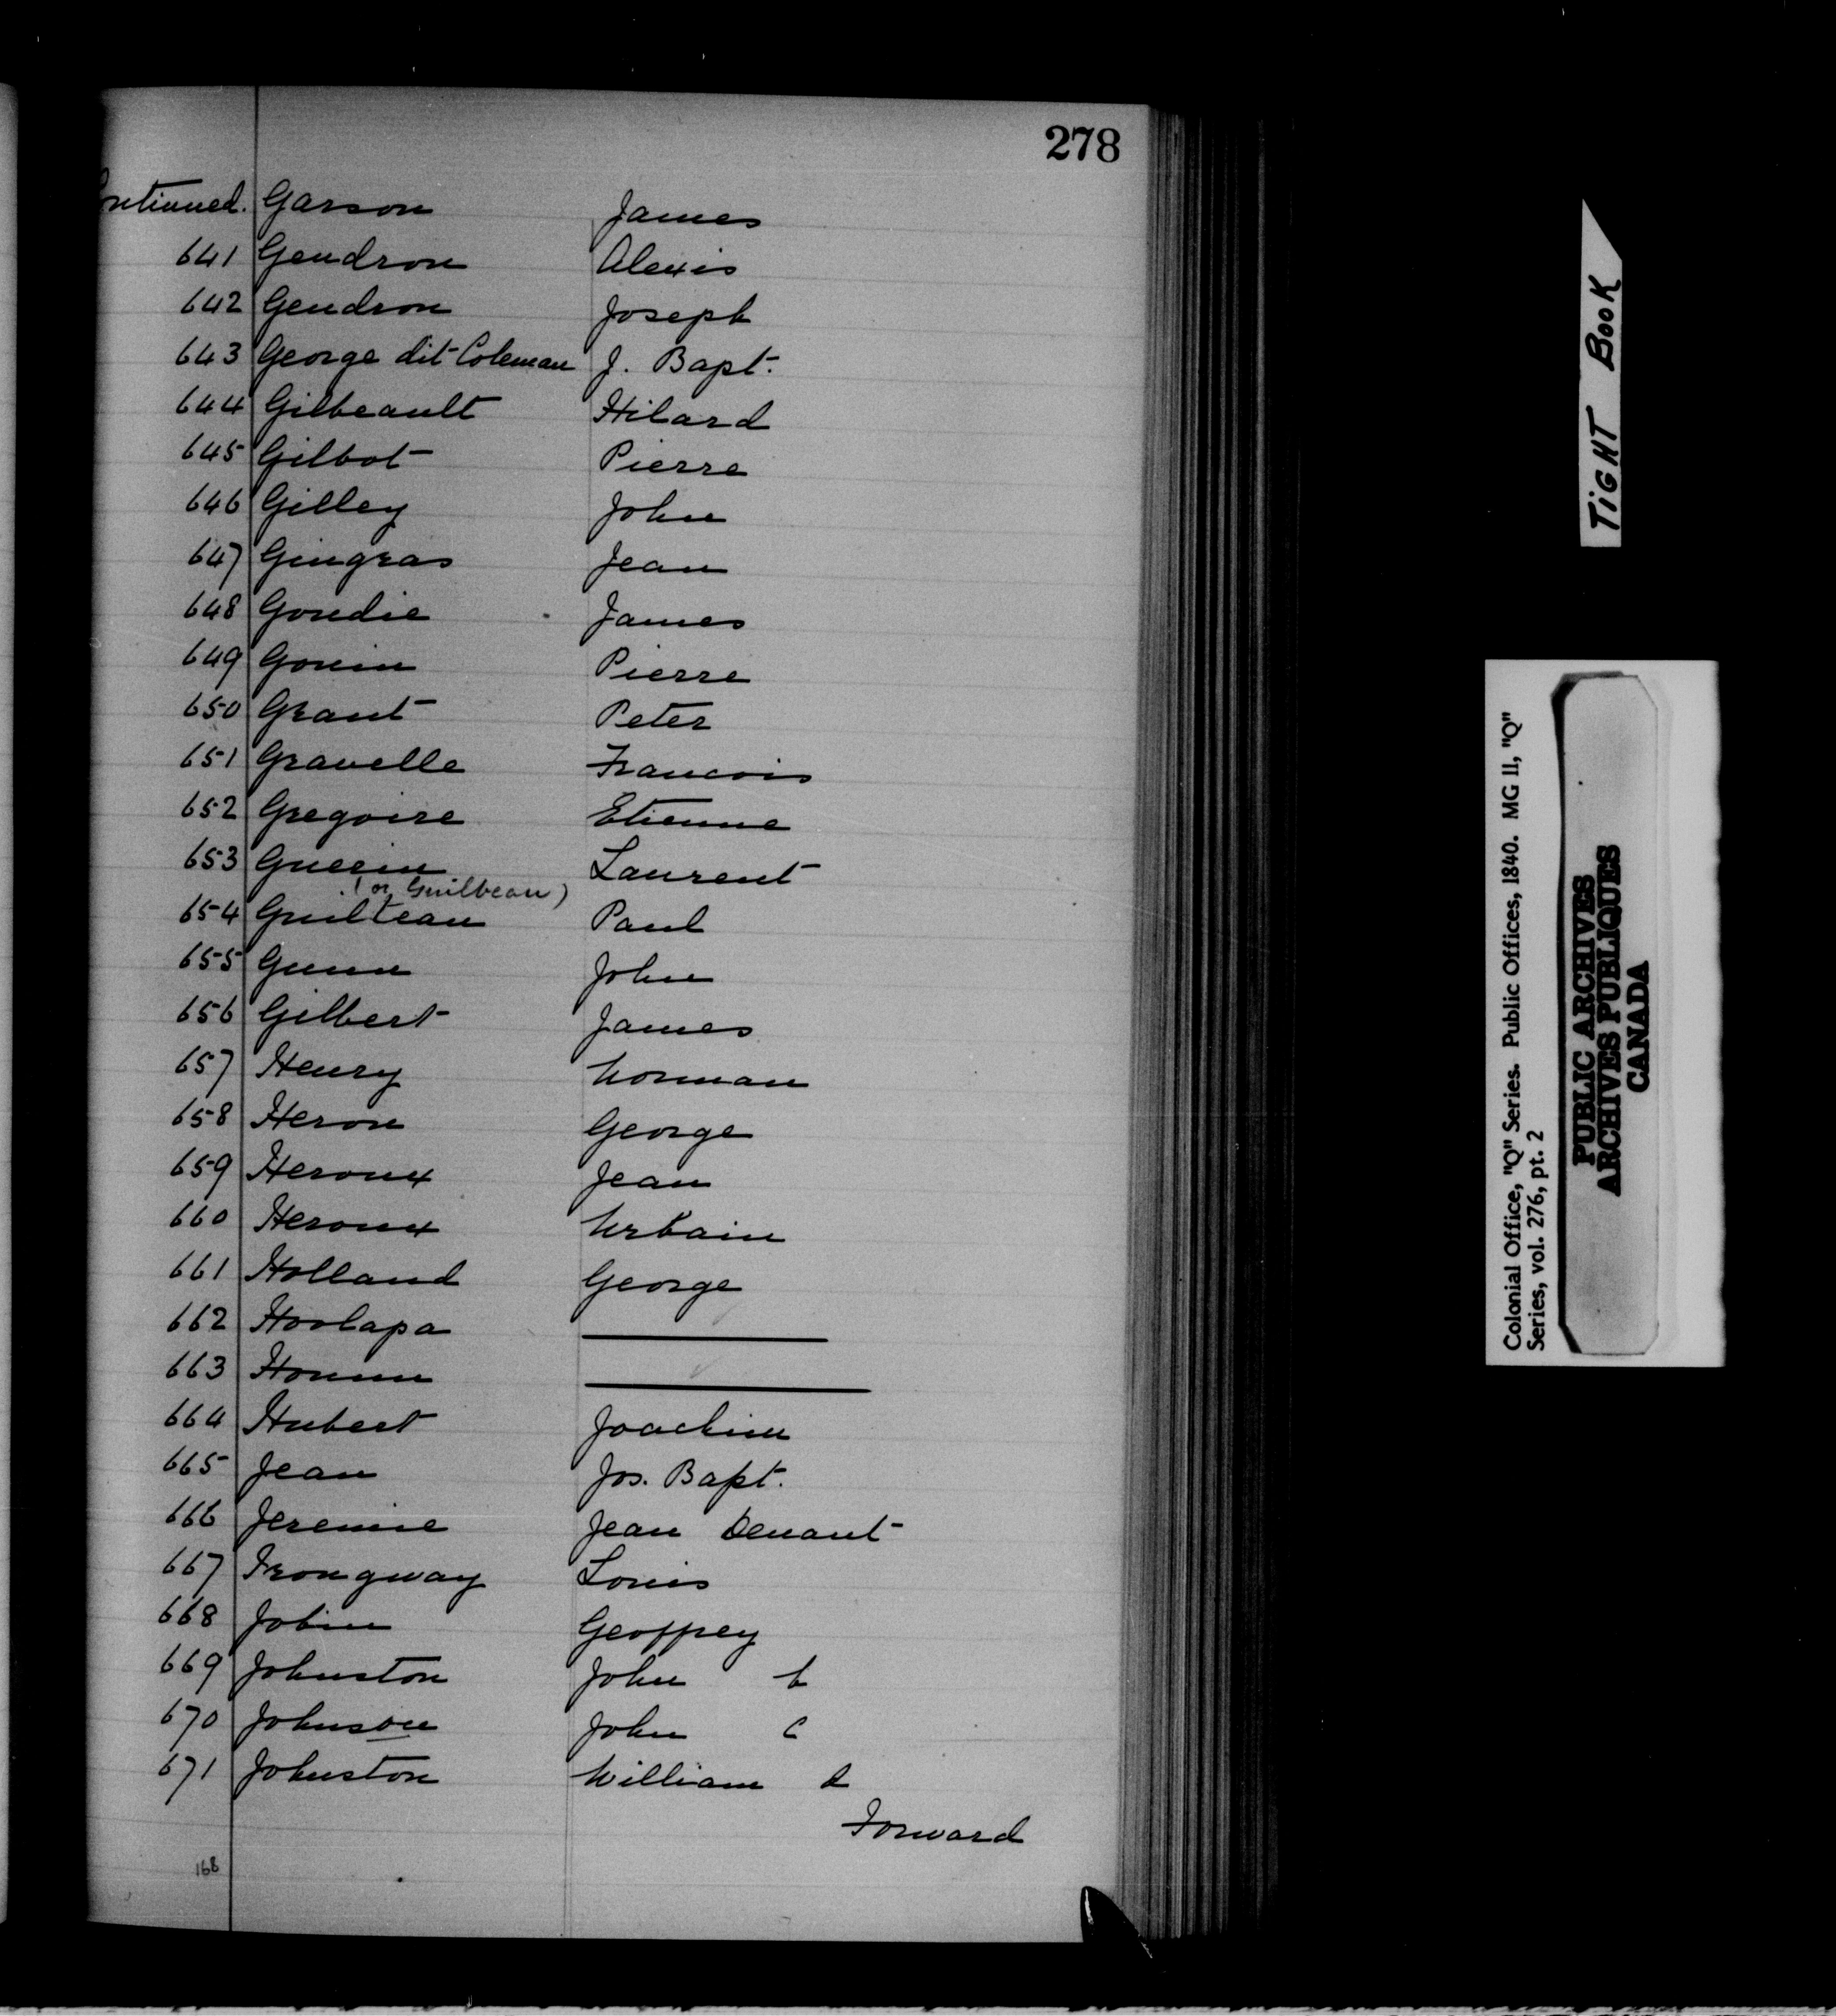 278
ontinued. Garson James
641 Gendron Alexis
642 Gendron Joseph
643 George dit Coleman J. Bapt.
644 Gilbeault Hilard
645 Gilbot Pierre
646 Gilley John
647 Gingras Jean
648 Goudie James
649 Gouin Pierre
650 Grant Peter
651 Gravelle Francois
652 Gregoire Etienne
653 Guerin Laurent
(or Guilbeau)
654 Guilteau Paul
655 Gunn John
656 Gilbert James
657 Henry Norman
658 Heron George
659 Heroux Jean
660 Heroux Urbain
661 Holland George
662 Hoolapa
663 Houmn
664 Hubert Joachim
665 Jean Jos. Bapt.
666 Jeremie Jean Denant
667 Irongway Louis
668 Jobin Geoffrey
669 Johnston John
670 Johnson John C
671 Johnston William
Forward
168
TiGHT BOOK
Colonial Office, "Q" Series. Public Offices, 1840. MG 11, "Q"
Series, vol. 276, pt. 2
PUBLIC ARCHIVES
ARCHIVES PUBLIQUES
CANADA